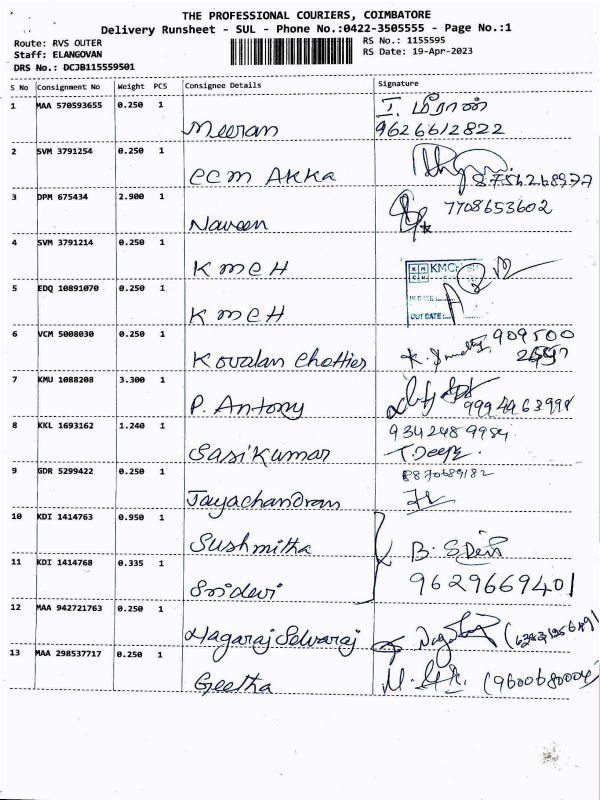 THE PROFESSIONAL COURIERS, COIMBATORE
Delivery Runsheet - SUL - Phone No.:0422-3505555 - Page No.:1
Route: RVS OUTER
Staff: ELANGOVAN
DRS No.: DCJB115559501
RS No.: 1155595
RS Date: 19-Apr-2023
S No Consignment No Weight PCS Consignee Details Signature
1 MAA 570593655 0.250 1 Meeran I. மீரான்
9626612822
2 SVM 3791254 0.250 1 CCM AKKA
3 DPM 675434 2.900 1 Naveen 7708653602
4 SVM 3791214 0.250 1 KMCH KMCH
IN DATE:
OUT DATE:
5 EDQ 10891070 0.250 1 KMCH
6 VCM 5008030 0.250 1 Kovalan Chettier K. 909500
7 KMU 1088208 3.300 1 P. Antony
8 KKL 1693162 1.240 1 Sasikumar
T. Deepa
9 GDR 5299422 0.250 1 Jayachandran 8870689182
10 KDI 1414763 0.950 1 Sushmitha B. SDevi
11 KDI 1414768 0.335 1 Sridevi 9629669401
12 MAA 942721763 0.250 1 Nagaraj Selvaraj
13 MAA 298537717 0.250 1 Geetha (9600680004)